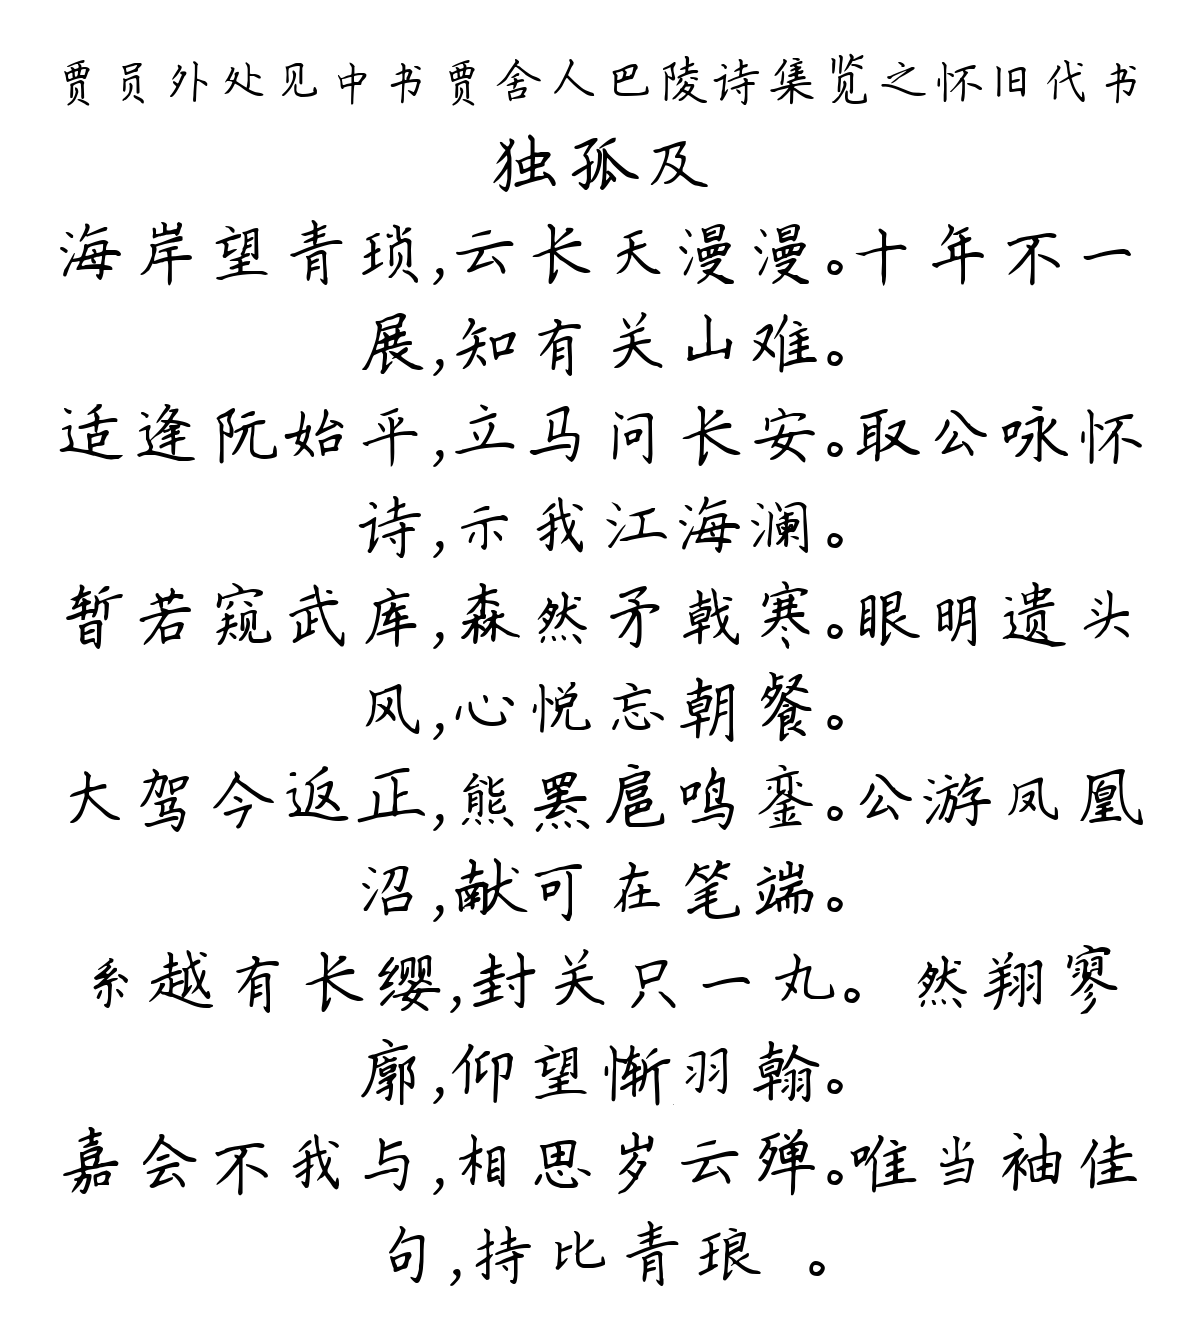 贾员外处见中书贾舍人巴陵诗集览之怀旧代书
独孤及
海岸望青琐,云长天漫漫。十年不一
展,知有关山难。
适逢阮始平,立马问长安。取公咏怀
诗,示我江海澜。
暂若窥武库,森然矛戟寒。眼明遗头
风,心悦忘朝餐。
大驾今返正,熊罴扈鸣銮。公游凤凰
沼,献可在笔端。
系越有长缨,封关只一丸。 然翔寥
廓,仰望惭羽翰。
嘉会不我与,相思岁云殚。唯当袖佳
句,持比青琅 。